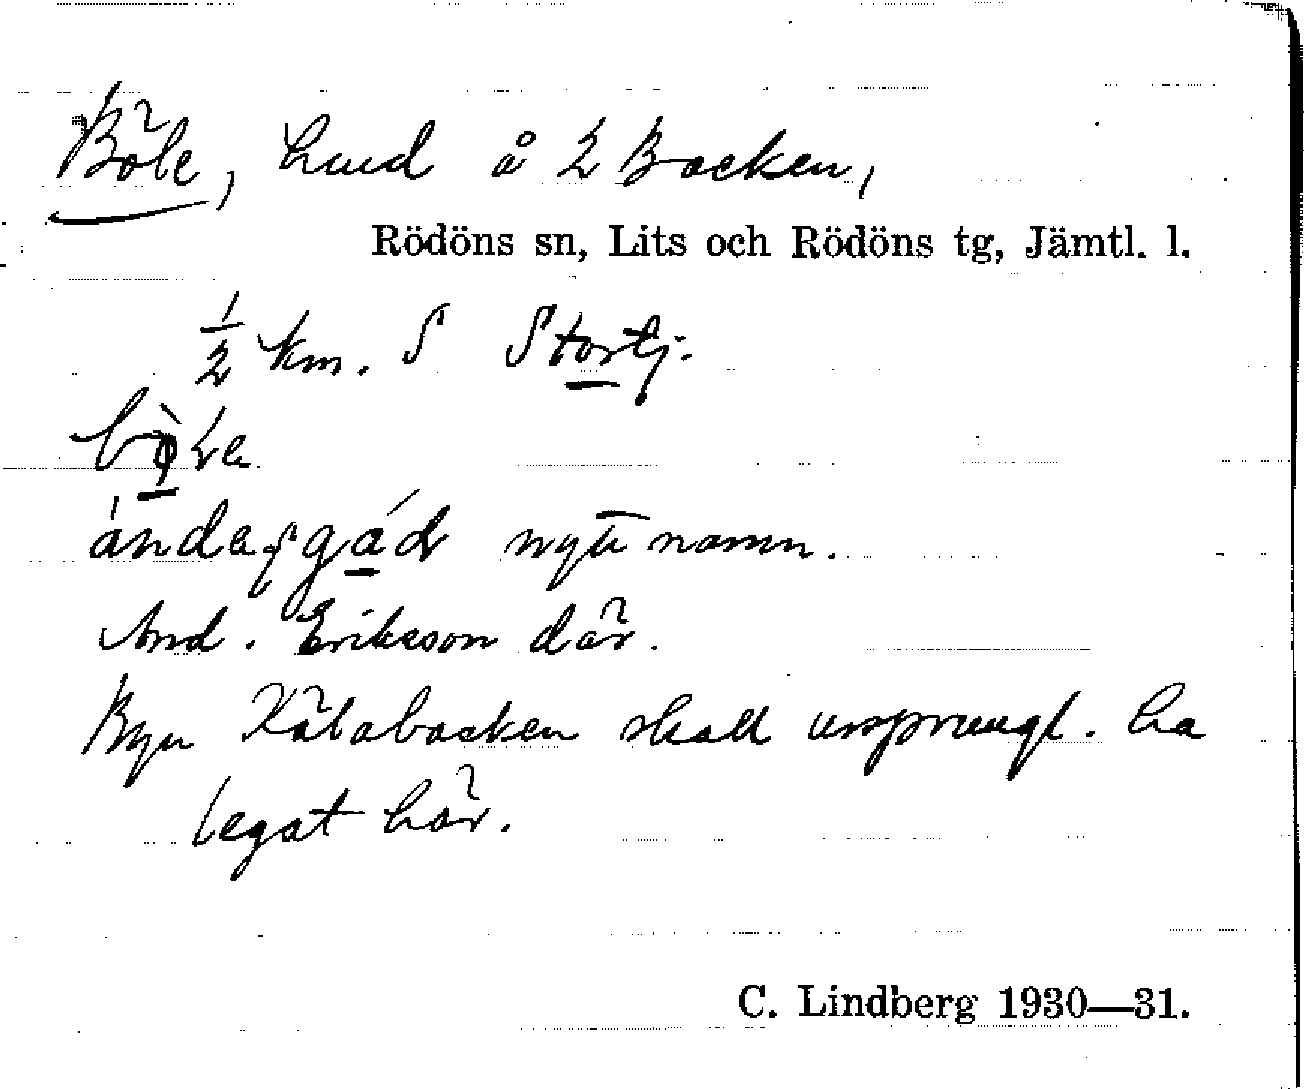 Böle, hmd å 2 Backen,
Rödöns sn, Lits och Rödöns tg, Jämtl. l.
½ km. S Stortj.
ándesgá nytt namn.
And. Eriksson där.
Byn Kålabacken skall ursprungl. ha
legat här.
C. Lindberg 1930—31.